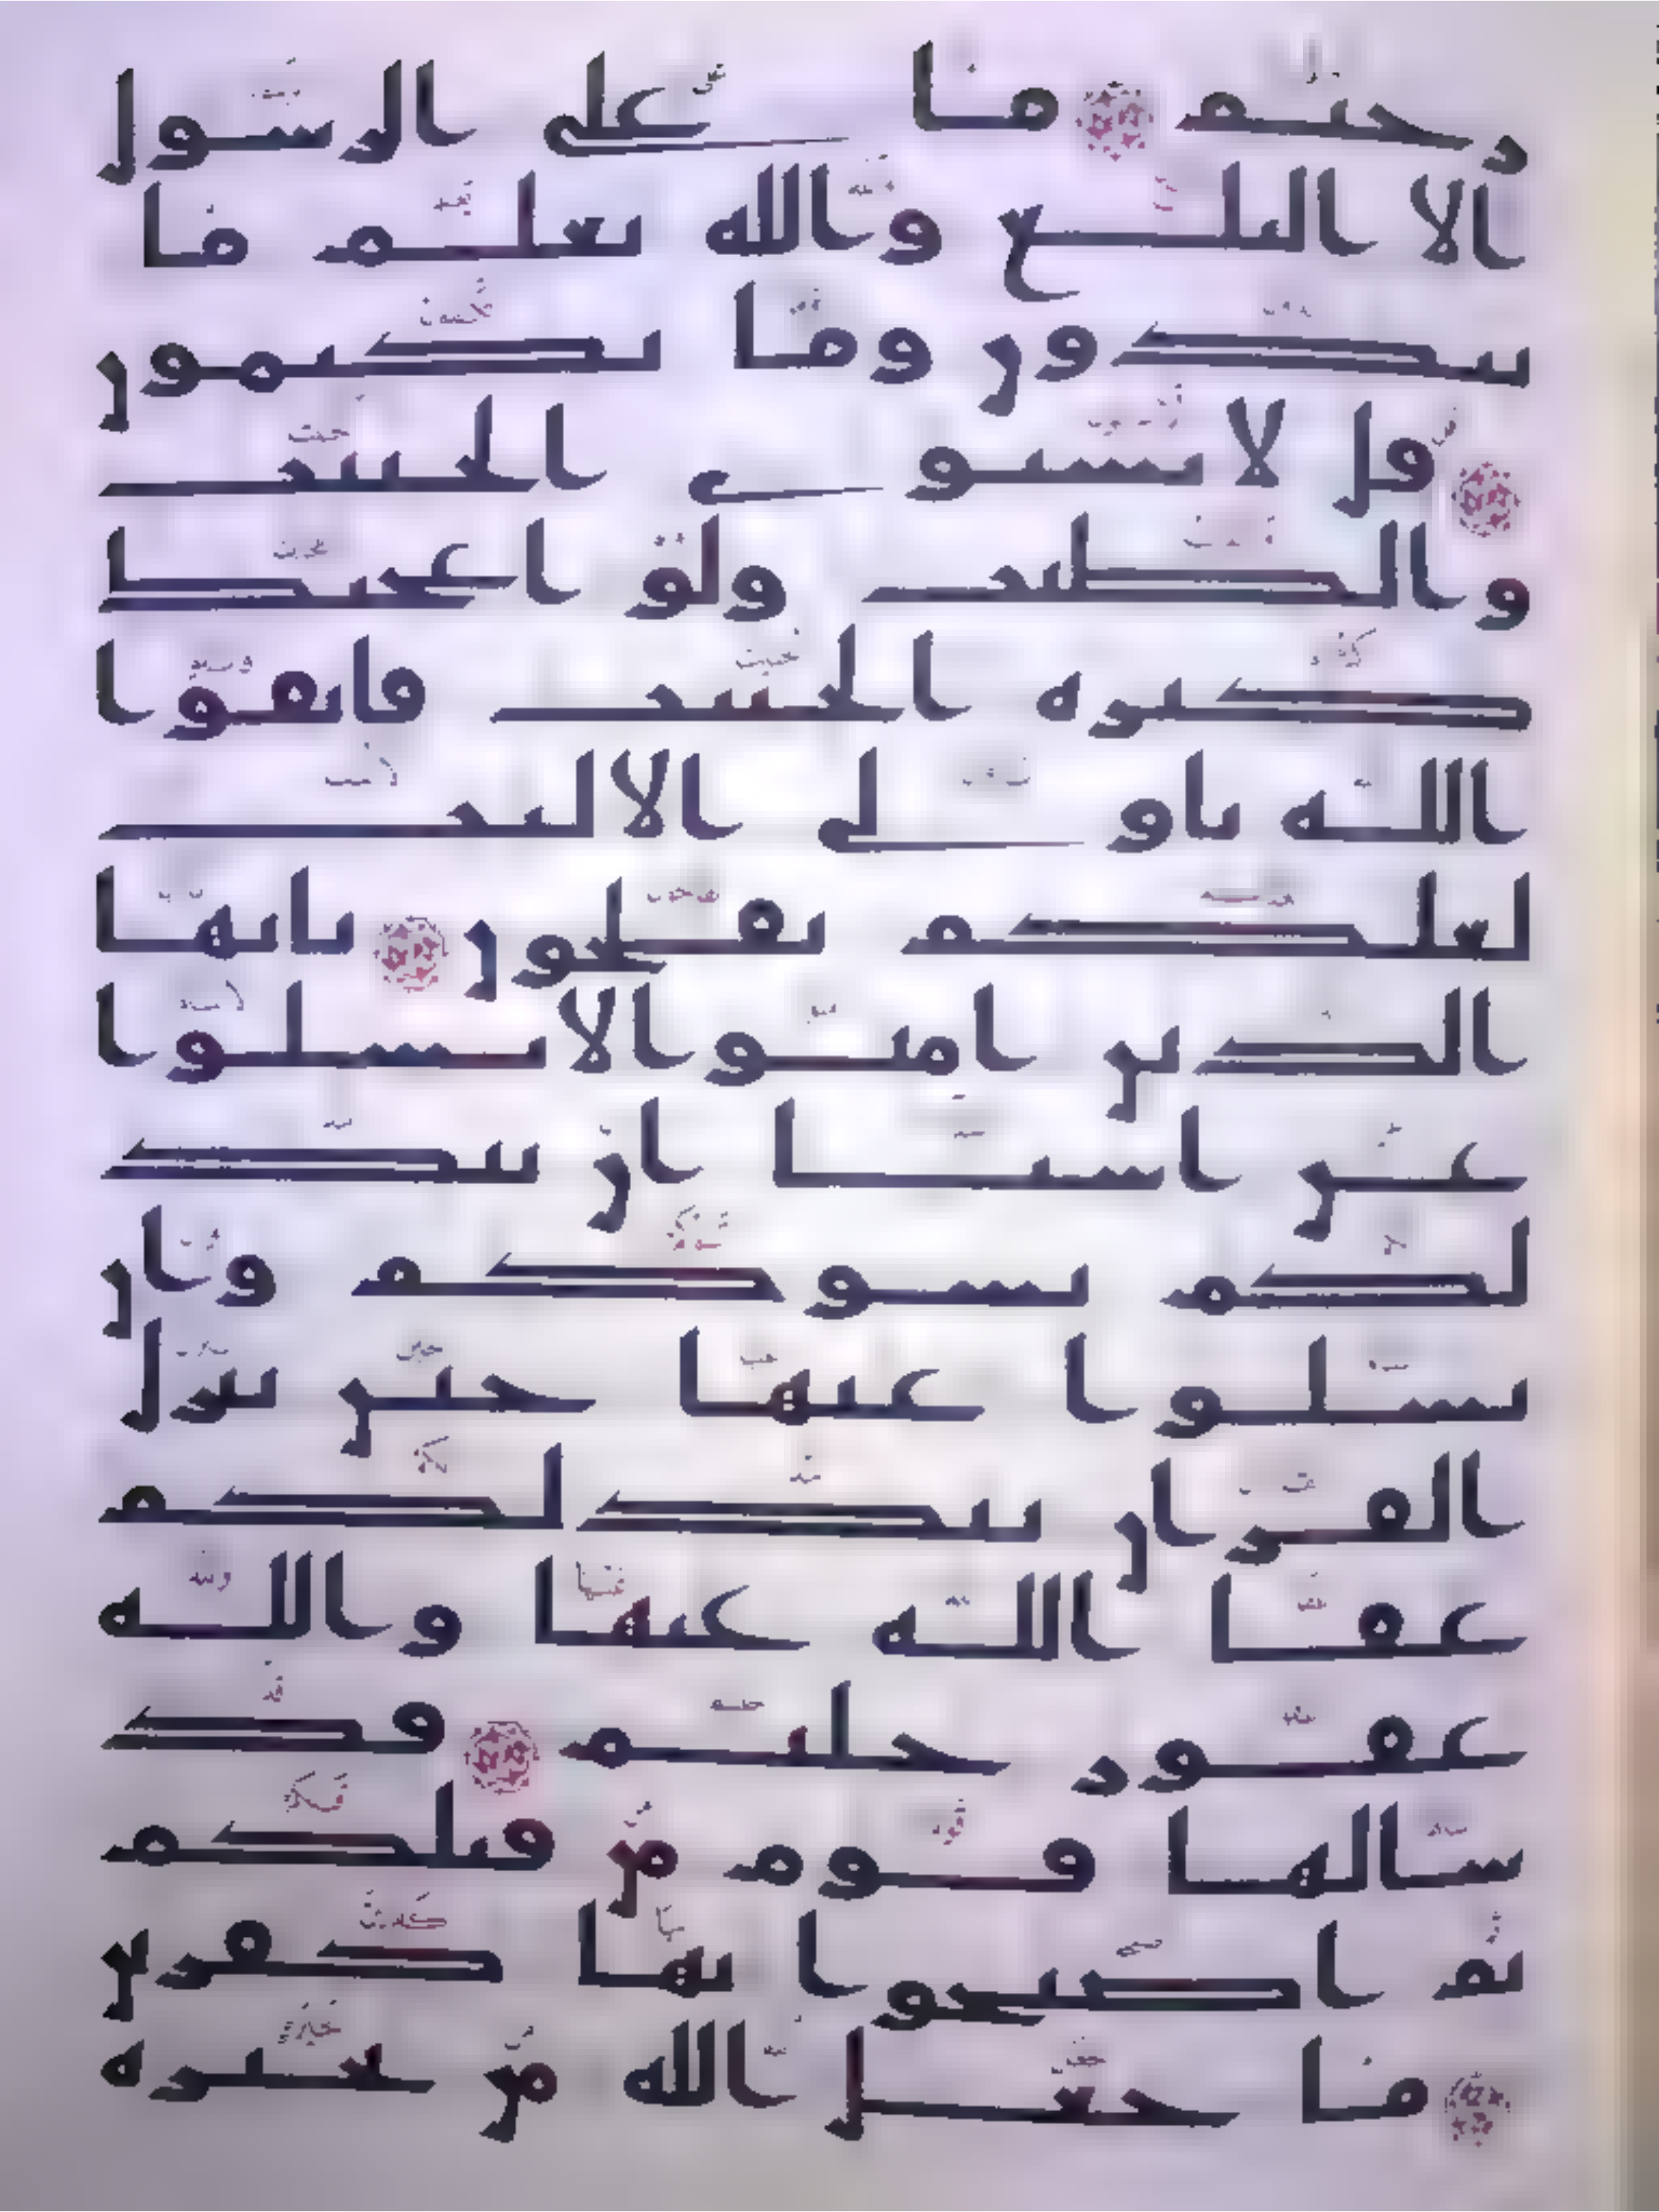 رحيم ما على الرسول
الا البلغ والله يعلم ما
تبدون وما تكتمون
قل لا يستوى الخبيث
والطيب ولو اعجبك
كثره الخبيث فاتقوا
الله ياولى الالبب
لعلكم تفلحون يايها
الذين امنوا لا تسلوا
عن اشيا ان تبد
لكم تسوكم وان
تسلوا عنها حين ينزل
القران تبد لكم
عفا الله عنها والله
غفور حليم قد
سالها قوم من قبلكم
ثم اصبحوا بها كفرين
ما جعل الله من بحيره